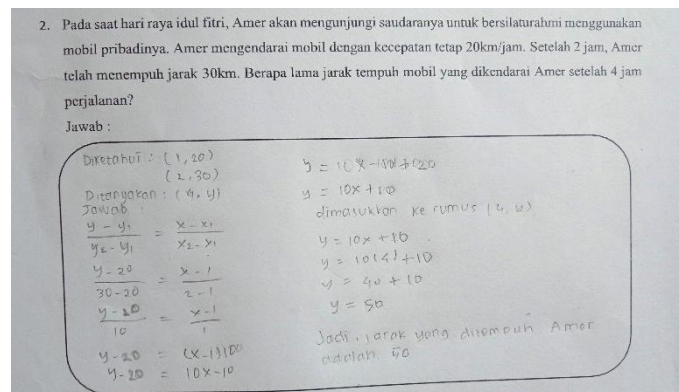 2. Pada saat hari raya idul fitri, Amer akan mengunjungi saudaranya untuk bersilaturahmi menggunakan
mobil pribadinya. Amer mengendarai mobil dengan kecepatan tetap 20km/jam. Setelah 2 jam, Amer
telah menempuh jarak 30km. Berapa lama jarak tempuh mobil yang dikendarai Amer setelah 4 jam
perjalanan?
Jawab :
Diketahui : (1, 20)
(2, 30)
Ditanyakan : (4, y)
Jawab :
y - y₁ / y₂ - y₁ = x - x₁ / x₂ - x₁
y - 20 / 30 - 20 = x - 1 / 2 - 1
y - 20 / 10 = x - 1 / 1
y - 20 = (x - 1)10
y - 20 = 10x - 10
y = 10x - 10 + 20
y = 10x + 10
dimasukkan ke rumus
y = 10x + 10
y = 10(4) + 10
y = 40 + 10
y = 50
Jadi, jarak yang ditempuh Amer
adalah 50